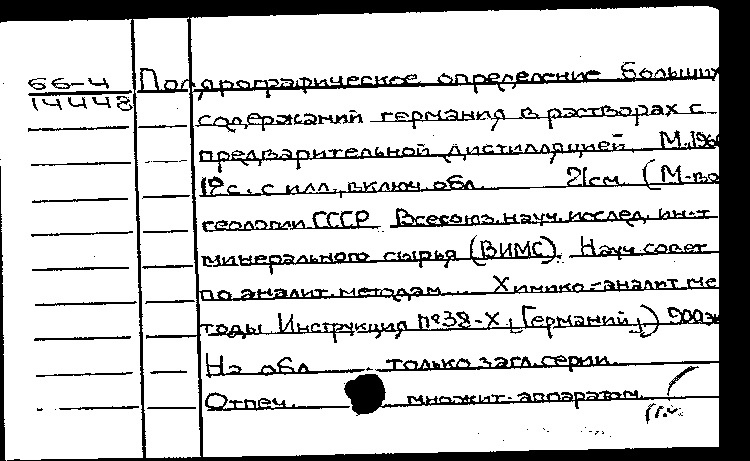 66-4 Полярографическое определение больших
14448
содержаний германия в растворах с
предварительной дистилляцией. М., 196
12с. с илл., включ. обл. 21см. (М-во
геологии СССР Всесоюз. науч. исслед. ин-т
минерального сырья (ВИМС). Науч. совет
по аналит. методам... Химико-аналит. ме
тоды Инструкция №38-Х, [Германий,]) 900эк
На обл. только загл. серии.
Отпеч. множит. аппаратом.